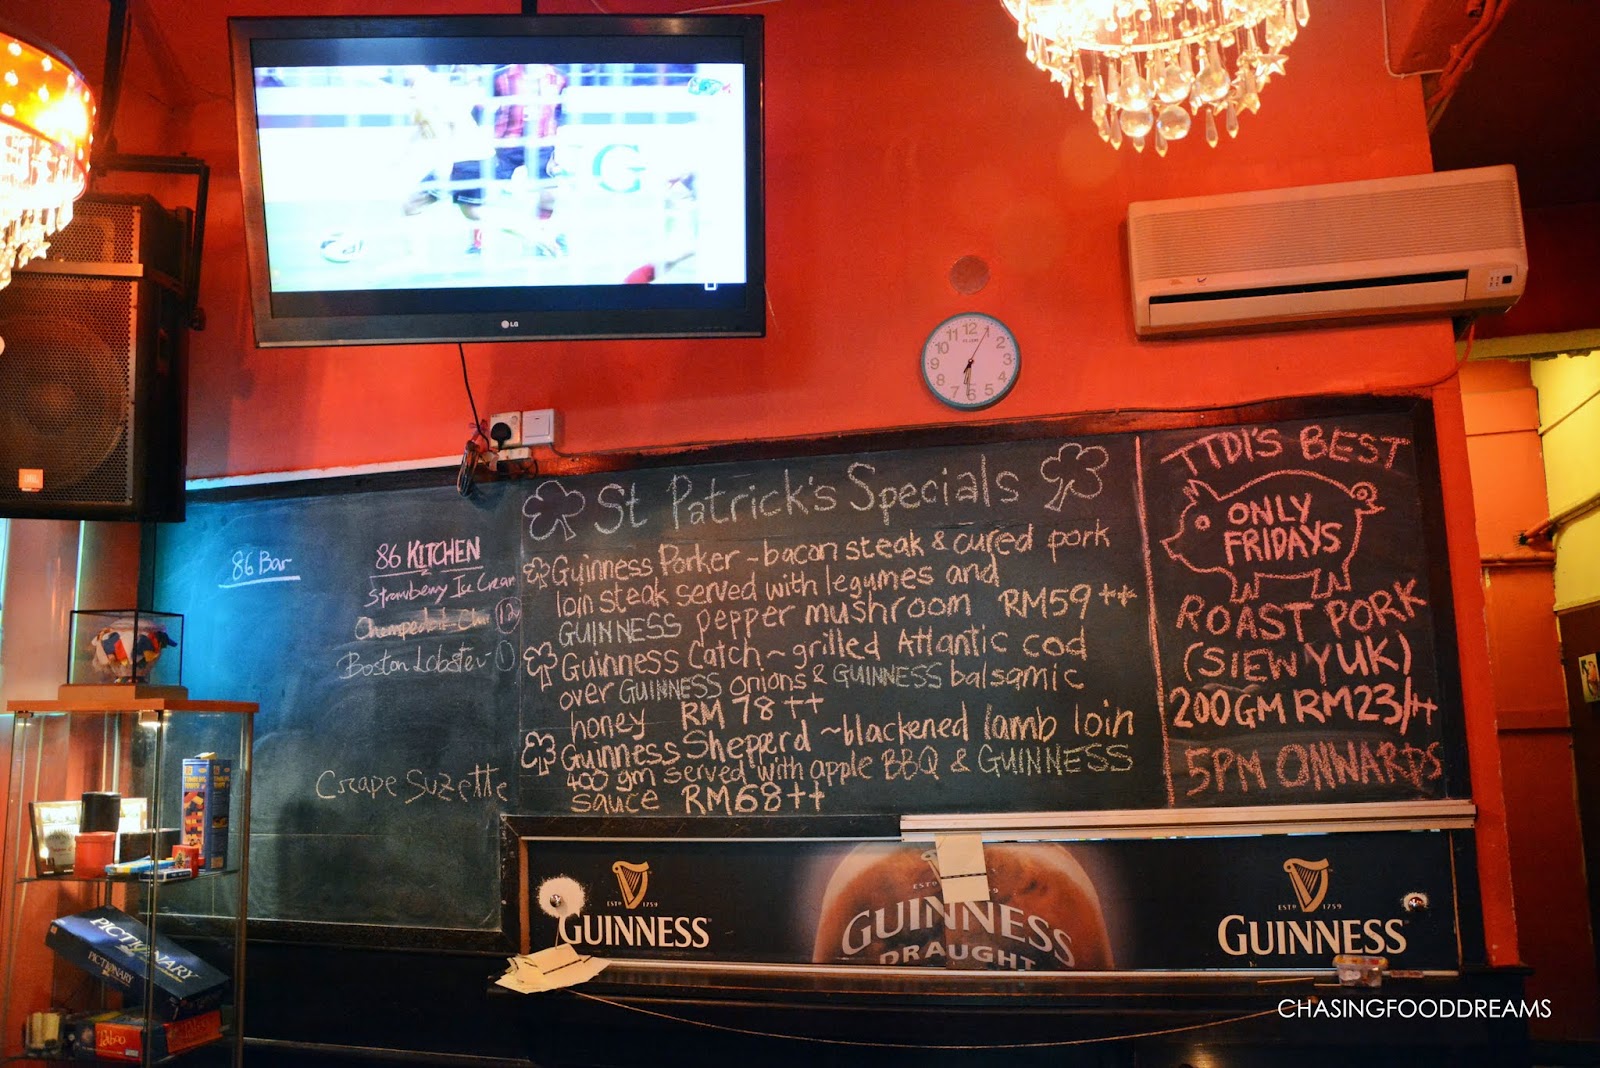 LG
JBL
12
11
10
9
8
7
6
5
4
3
2
86 Bar
86 KITCHEN
Strawberry Ice Cream
12
Boston Lobster 1
Creape Suzette
St Patrick's Specials
Guinness Porker ~ bacon steak & cured pork
loin steak served with legumes and
GUINNESS pepper mushroom RM59++
Guinness Catch ~ grilled Atlantic cod
over GUINNESS onions & GUINNESS balsamic
honey RM 78++
Guinness Shepperd ~ blackened lamb loin
400 gm served with apple BBQ & GUINNESS
sauce RM68++
TTDI'S BEST
ONLY
FRIDAYS
ROAST PORK
(SIEW YUK)
200GM RM23/++
5PM ONWARDS
ESTD 1759
GUINNESS
ESTD 1759
GUINNESS
DRAUGHT
ESTD 1759
GUINNESS
PICTIONARY
PICTIONARY
Taboo
CHASINGFOODDREAMS